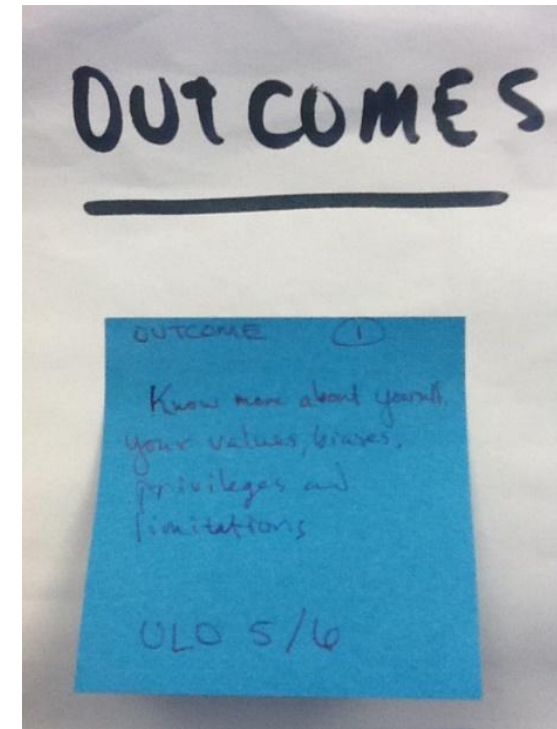 OUTCOMES
OUTCOME ①
Know more about yourself.
your values, biases,
privileges and
limitations
ULO 5/6